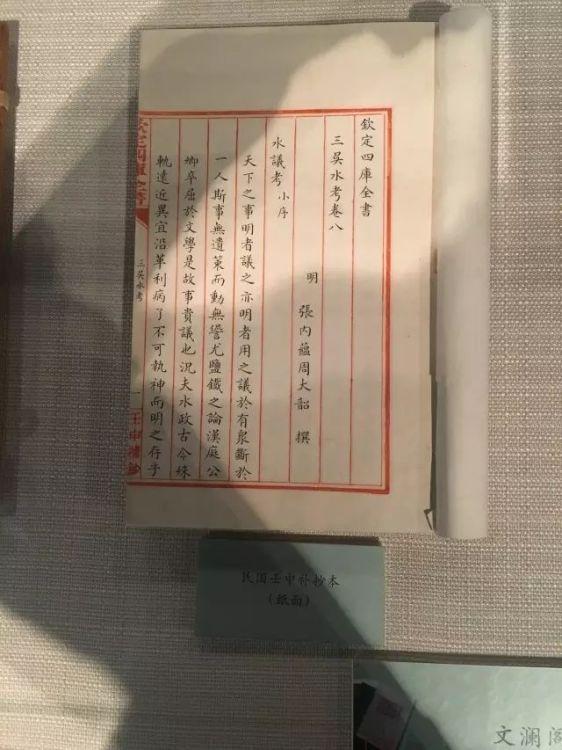 欽定四庫全書
三吳水考卷八
明 張内蘊周大韶 撰
水議考 小序
天下之事明者議之亦明者用之議於有衆斷於
一人斯事無遺策而動無譽尤鹽鐵之論漢庭公
卿卒屈於文學是故事貴議也況夫水政古今殊
軌遠近異宜沿革利病了不可執神而明之存乎
欽定四庫全書
三吳水考
一
壬申補鈔
民国壬申补抄本
（纸面）
文澜阁